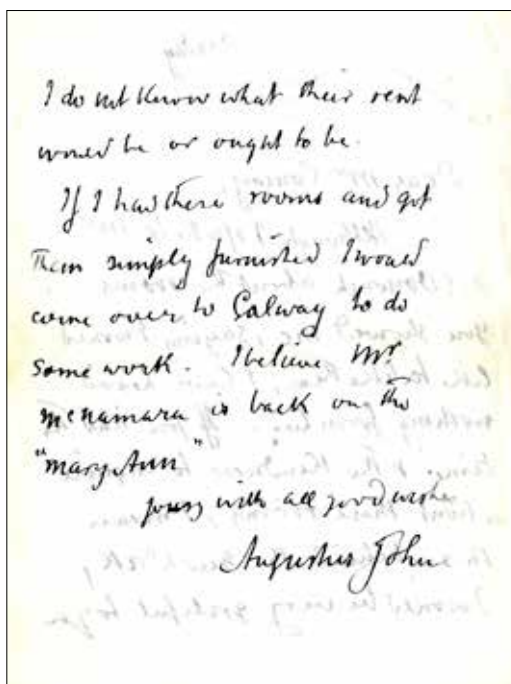 I do not know what their rent
would be or ought to be.
If I had these rooms and got
them simply furnished I would
come over to Galway to do
some work. I believe Mr
McNamara is back on the
"Mary Ann"
yours with all good wishes
Augustus John